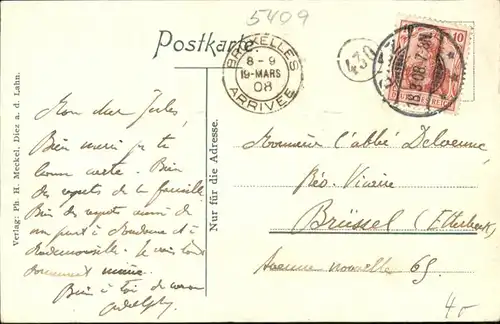 5409
Postkarte
BRUXELLES
8 - 9
19-MARS
08
ARRIVÉE
430
10
Verlag: Ph. H. Meckel, Diez a. d. Lahn.
Nur für die Adresse.
Mon cher Jules,
Bien merci de ta
bonne carte. Bien
des respects de la famille
Bien des respects aussi de
ma part à Madame et à
Mademoiselle. Je vais tout
doucement mieux.
Bien à toi de cœur
Monsieur l'abbé Delvenne
Rév. Vicaire
Brüssel (Etterbeek)
Avenue nouvelle 65
4 -